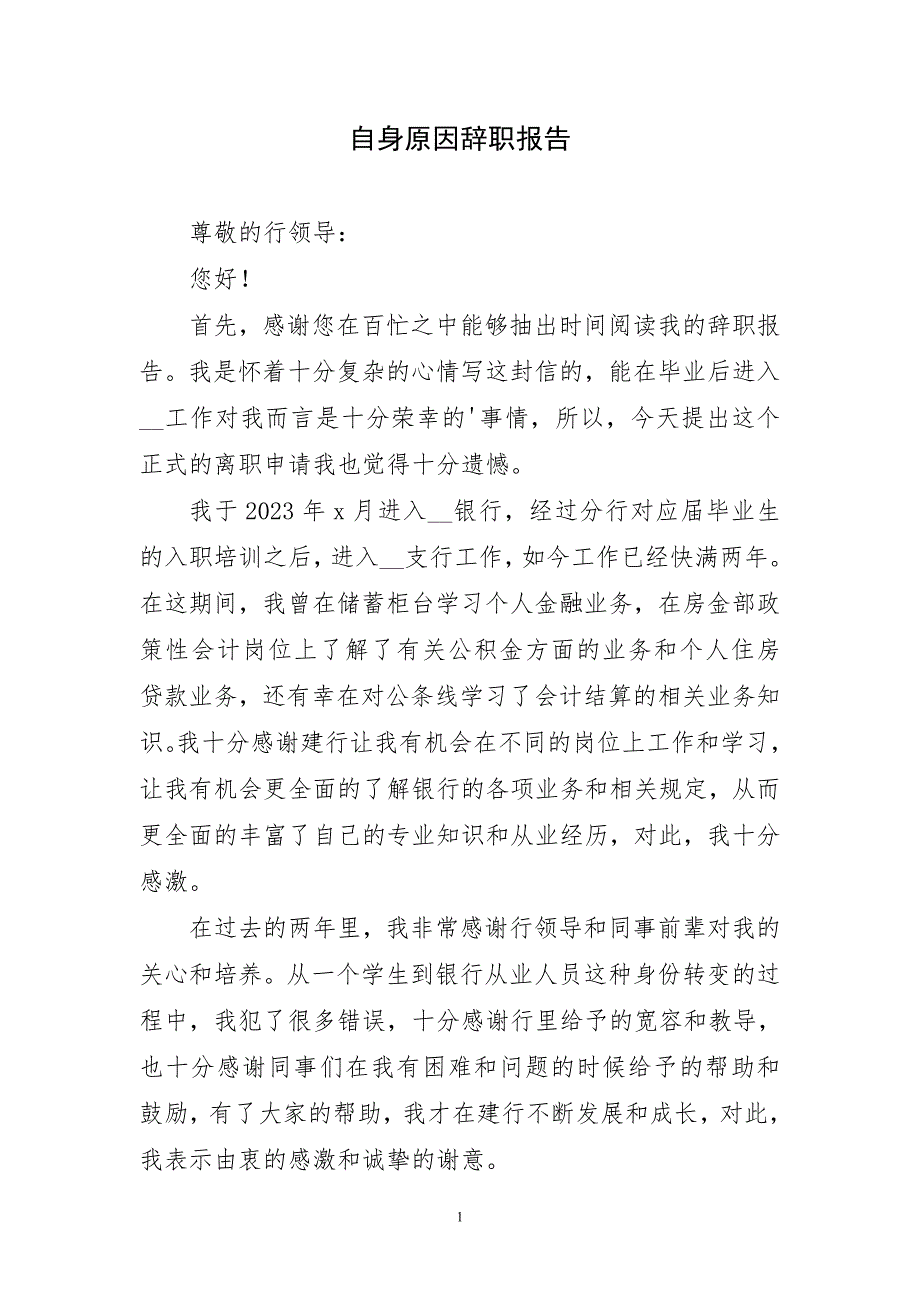 自身原因辞职报告
尊敬的行领导：
您好！
首先，感谢您在百忙之中能够抽出时间阅读我的辞职报
告。我是怀着十分复杂的心情写这封信的，能在毕业后进入
__工作对我而言是十分荣幸的'事情，所以，今天提出这个
正式的离职申请我也觉得十分遗憾。
我于 2023 年 x 月进入__银行，经过分行对应届毕业生
的入职培训之后，进入__支行工作，如今工作已经快满两年。
在这期间，我曾在储蓄柜台学习个人金融业务，在房金部政
策性会计岗位上了解了有关公积金方面的业务和个人住房
贷款业务，还有幸在对公条线学习了会计结算的相关业务知
识。我十分感谢建行让我有机会在不同的岗位上工作和学习，
让我有机会更全面的了解银行的各项业务和相关规定，从而
更全面的丰富了自己的专业知识和从业经历，对此，我十分
感激。
在过去的两年里，我非常感谢行领导和同事前辈对我的
关心和培养。从一个学生到银行从业人员这种身份转变的过
程中，我犯了很多错误，十分感谢行里给予的宽容和教导，
也十分感谢同事们在我有困难和问题的时候给予的帮助和
鼓励，有了大家的帮助，我才在建行不断发展和成长，对此，
我表示由衷的感激和诚挚的谢意。
1